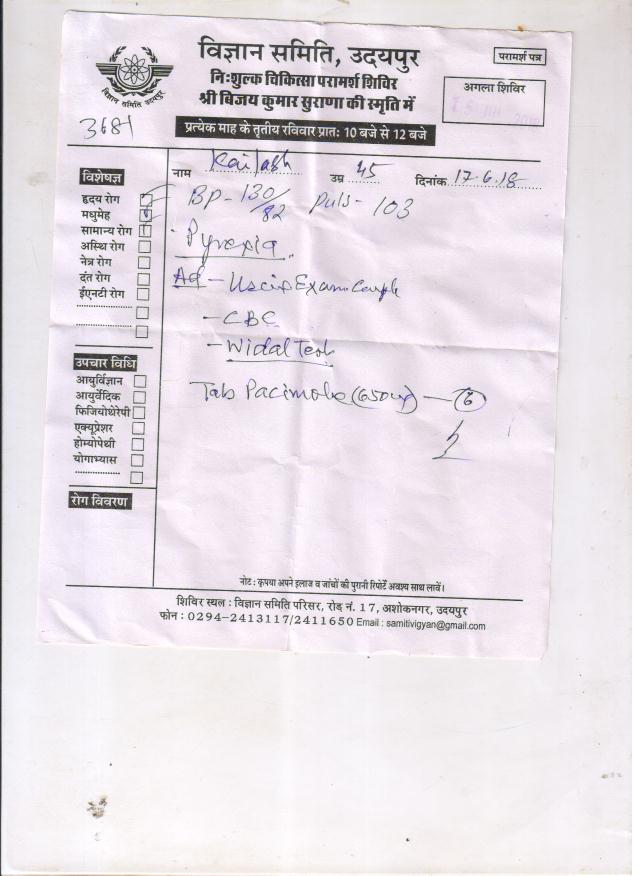 विज्ञान समिति, उदयपुर
परामर्श पत्र
निःशुल्क चिकित्सा परामर्श शिविर
श्री विजय कुमार सुराणा की स्मृति में
अगला शिविर
विज्ञान समिति उदयपुर
3681
प्रत्येक माह के तृतीय रविवार प्रातः 10 बजे से 12 बजे
नाम Kailash उम्र 45 दिनांक 17.6.18
विशेषज्ञ
हृदय रोग
मधुमेह
सामान्य रोग
अस्थि रोग
नेत्र रोग
दंत रोग
ईएनटी रोग
BP - 130/82 Puls - 103
Pyrexia
Ad - Exam
- CBC
- Widal Test
Tab (650) - 6
उपचार विधि
आयुर्विज्ञान
आयुर्वेदिक
फिजियोथेरेपी
एक्यूप्रेशर
होम्योपेथी
योगाभ्यास
रोग विवरण
नोट : कृपया अपने इलाज व जांचों की पुरानी रिपोर्टें अवश्य साथ लावें।
शिविर स्थल : विज्ञान समिति परिसर, रोड़ नं. 17, अशोकनगर, उदयपुर
फोन : 0294-2413117/2411650 Email : samitivigyan@gmail.com